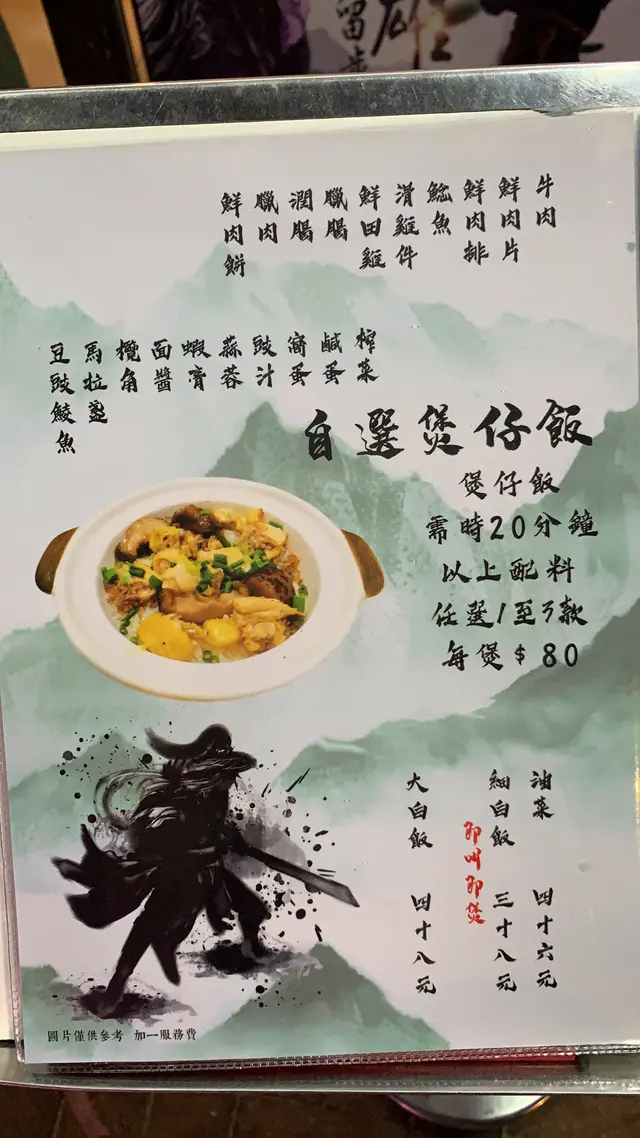 牛肉
鮮肉片
鮮肉排
鯰魚
滑雞件
鮮田雞
臘腸
潤腸
臘肉
鮮肉餅
榨菜
鹹蛋
窩蛋
豉汁
蒜蓉
蝦膏
面醬
欖角
馬拉盞
豆豉鯪魚
自選煲仔飯
煲仔飯
需時20分鐘
以上配料
任選1至3款
每煲$80
油菜 四十六元
細白飯 三十八元
即叫即煲
大白飯 四十八元
圖片僅供參考 加一服務費